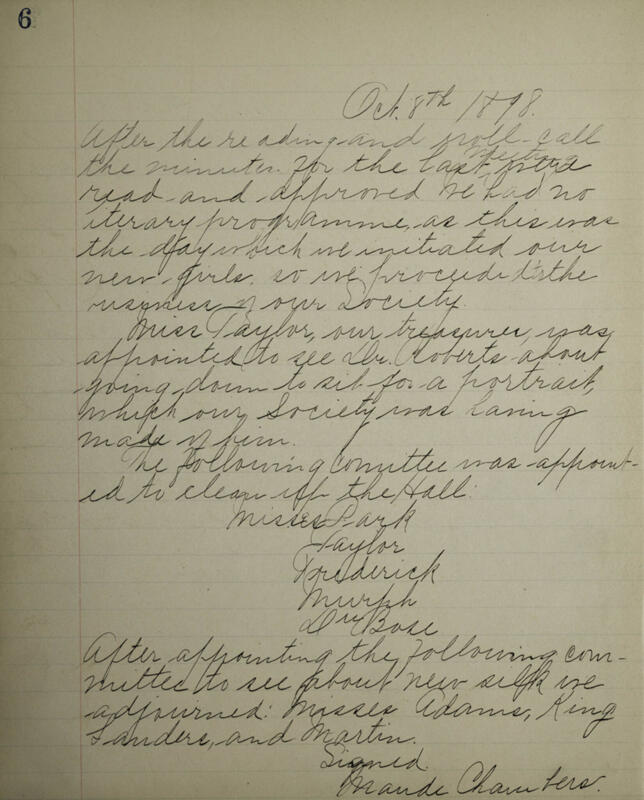 6
Oct. 8th 1898.
After the reading and roll-call
the minutes for the last meeting were
read and approved We had no
iterary programme, as this was
the day which we initiated our
new girls. so we proceeded to the
usiness of our Society.
Miss Taylor, our treasurer, was
appointed to see Dr. Roberts about
going down to sit for a portrait,
which our Society was having
made of him.
The following comittee was appoint-
ed to clean up the Hall:
Misses Park
Taylor
Frederick
Murph
DuBose
After appointing the following com-
mittee to see about new silk we
adjourned: Misses Adams, King
Sanders, and Martin.
Signed
Maude Chambers.